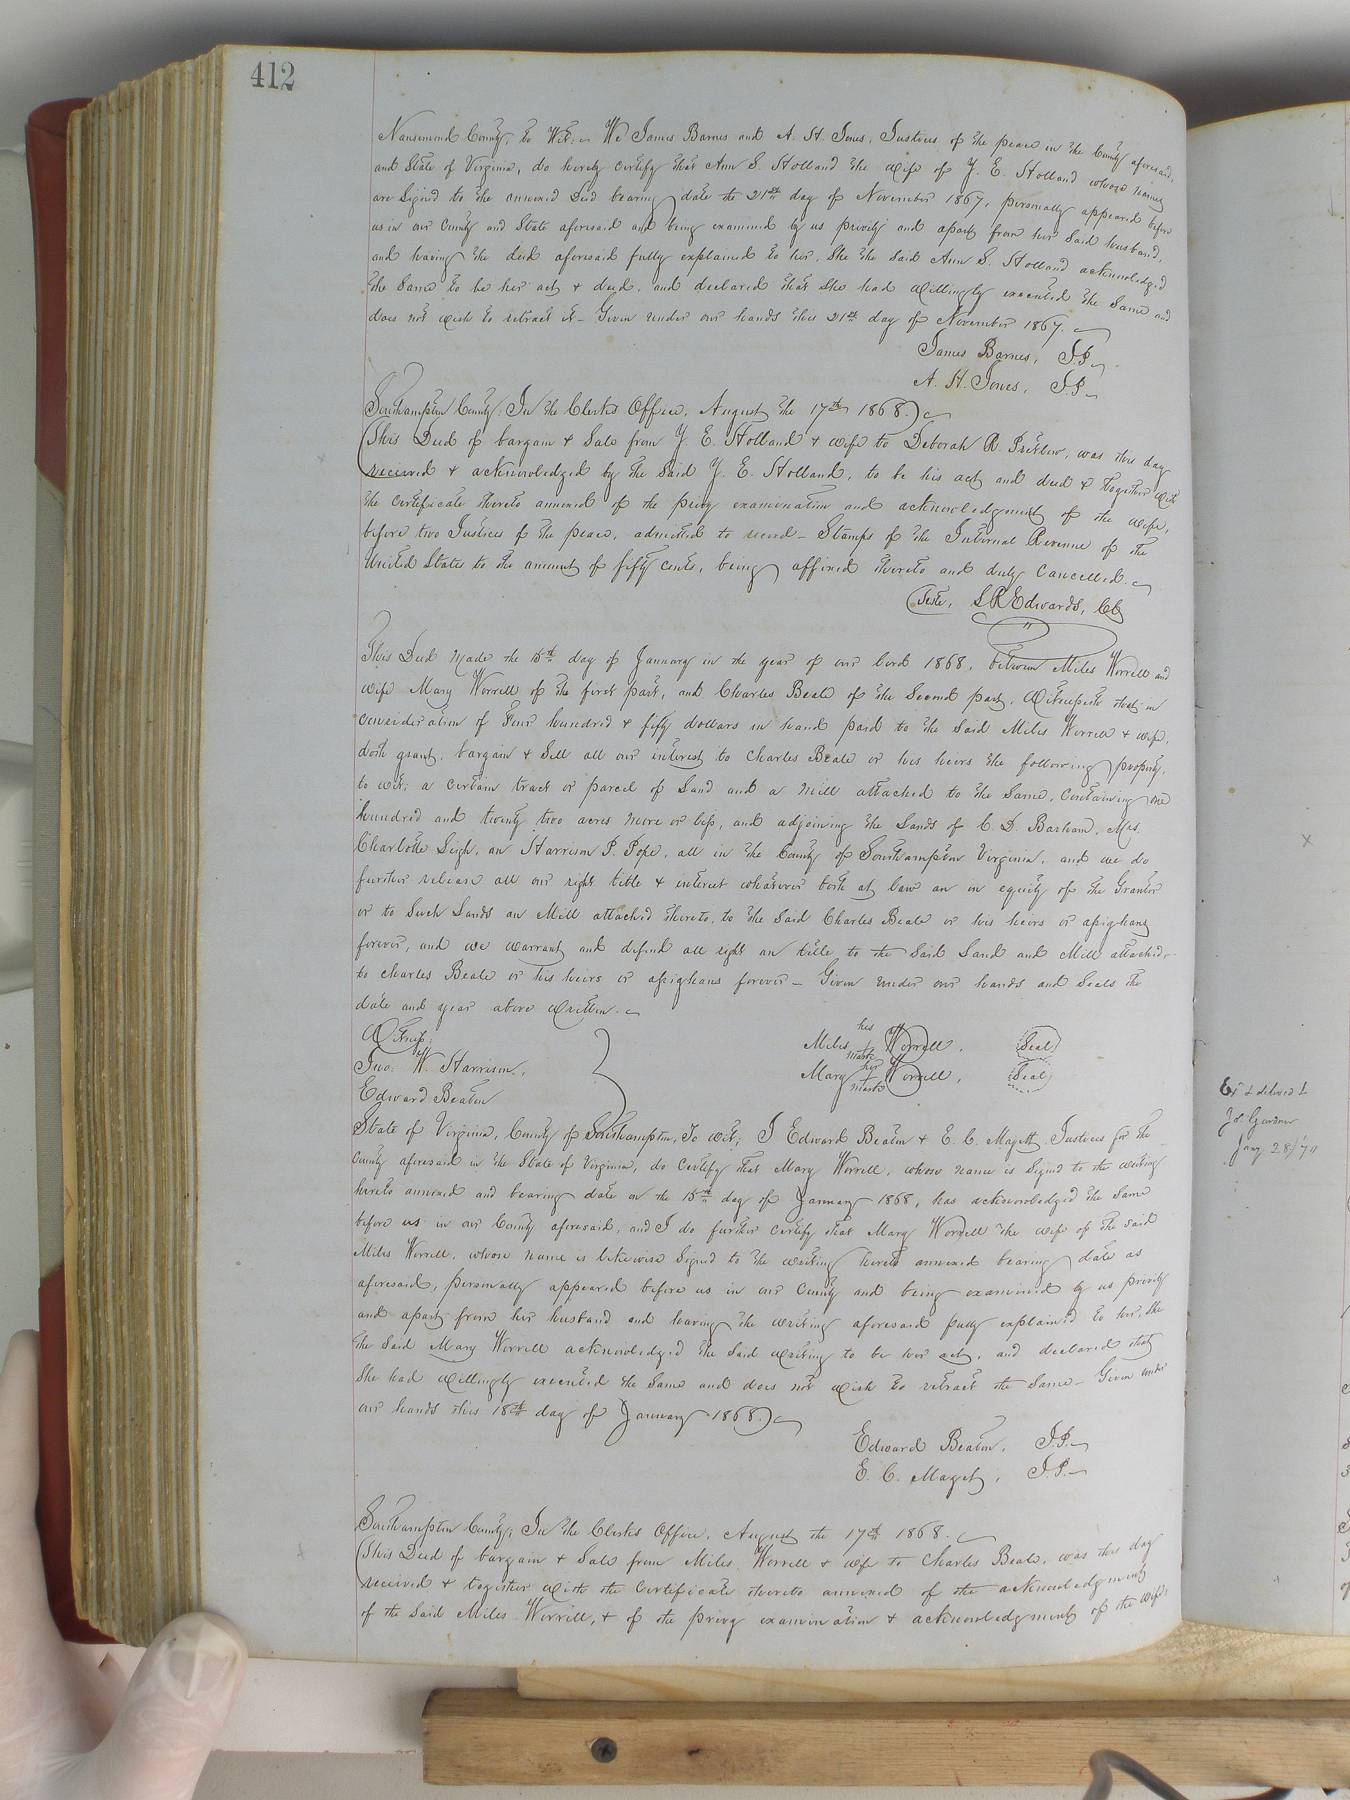 412
Nansemond County, to Wit: We James Barnes and A. H. Jones, Justices of the peace in the County aforesaid,
and State of Virginia, do hereby certify that Ann S. Holland the wife of Y. E. Holland whose names
are Signed to the annexed Deed bearing date the 21st day of November 1867, personally appeared before
us in our County and State aforesaid and being examined by us privily and apart from her Said husband,
and having the deed aforesaid fully explained to her, She the Said Ann S. Holland acknowledged
the Same to be her act & deed, and declared that She had willingly executed the Same and
does not wish to retract it - Given under our hands this 21st day of November 1867.
James Barnes, J.P.
A. H. Jones, J.P.
Southampton County; In the Clerks Office, August the 17th 1868.
This Deed of bargain & Sale from Y. E. Holland & wife to Deborah R. Pretlow, was this day
received & acknowledged by the Said Y. E. Holland, to be his act and deed & together with
the certificate thereto annexed of the privy examination and acknowledgment of the wife,
before two Justices of the peace, admitted to record - Stamps of the Internal Revenue of the
United States to the amount of fifty cents, being affixed thereto and duly cancelled.
Teste, L R Edwards, CC
This Deed Made the 15th day of January in the year of our lord 1868, between Miles Worrell and
wife Mary Worrell of the first part, and Charles Beale of the Second part, Witnesseth that in
consideration of Four hundred & fifty dollars in hand paid to the Said Miles Worrell & wife,
doth grant, bargain & Sell all our interest to Charles Beale or his heirs the following property,
to wit; a certain tract or parcel of Land and a Mill attached to the Same, Containing one
hundred and twenty two acres more or less, and adjoining the Lands of C. D. Barham, Mrs.
Charlotte Leigh, an Harrison P. Pope, all in the County of Southampton Virginia, and we do
further release all our right title & interest whatever both at law an in equity of the Grantor
or to Such Lands an Mill attached thereto, to the Said Charles Beale or his heirs or assighans
forever, and we warrant and defend all right an title to the Said Land and Mill attached,
to Charles Beale or his heirs or assighans forever - Given under our hands and Seals the
date and year above written.
Witness;
Jno. W. Harrison,
Edward Beaton
his
Miles + Worrell, Seal
mark
her
Mary + Worrell, Seal
mark
State of Virginia, County of Southampton, To wit; I Edward Beaton & E. C. Magett Justices for the
County aforesaid in the State of Virginia, do certify that Mary Worrell, whose name is Signed to the writing
hereto annexed and bearing date on the 15th day of January 1868, has acknowledged the Same
before us in our County aforesaid, and I do further certify that Mary Worrell the wife of the said
Miles Worrell, whose name is likewise Signed to the writing hereto annexed bearing date as
aforesaid, personally appeared before us in our County and being examined by us privily
and apart from her husband and having the writing aforesaid fully explained to her, She
the Said Mary Worrell acknowledged the Said writing to be her act, and declared that
She had willingly executed the Same and does not wish to retract the Same - Given under
our hands this 18th day of January 1868.
Edward Beaton, J.P.
E. C. Magett, J.P.
Southampton County; In the Clerks Office, August the 17th 1868.
This Deed of bargain & Sale from Miles Worrell & wife to Charles Beale, was this day
received & together with the Certificate thereto annexed of the acknowledgment
of the Said Miles Worrell, & of the privy examination & acknowledgment of the wife,
Ex'd & delivered to
Jan'y 28/70